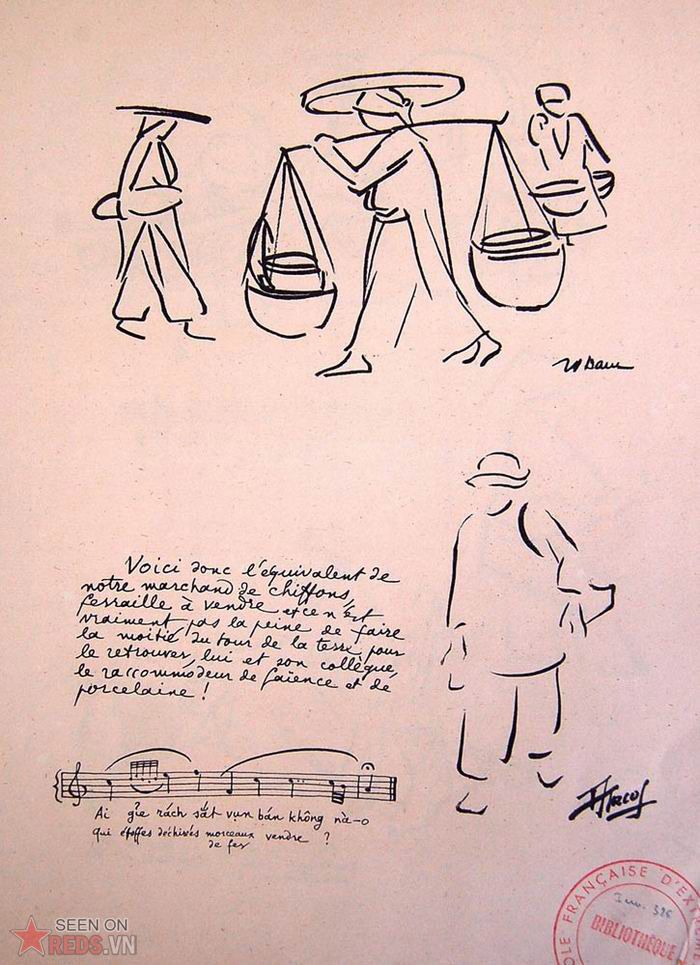 Voici donc l'équivalent de
notre marchand de chiffons,
ferraille à vendre et ce n'est
vraiment pas la peine de faire
la moitié du tour de la terre pour
le retrouver, lui et son collègue,
le raccommodeur de faïence et de
porcelaine !
Ai giẻ rách sắt vụn bán không nà-o
qui étoffes déchirés morceaux vendre ?
de fer
OLE FRANÇAISE D'EXT
BIBLIOTHÈQUE
SEEN ON
REDS.VN